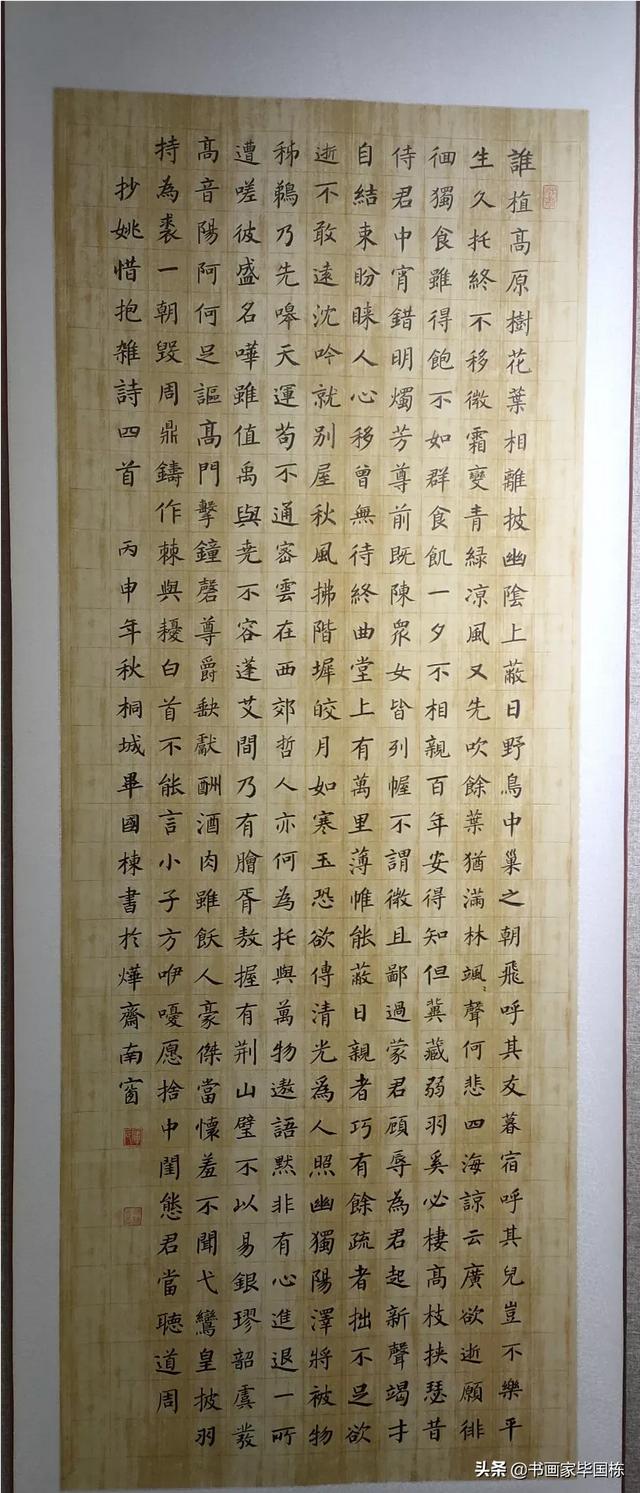 誰植高原樹花葉相離披幽陰上蔽日野鳥中巢之朝飛呼其友暮宿呼其兒豈不樂平
生久托終不移微霜變青綠凉風又先吹餘葉猶滿林颯〻聲何悲四海諒云廣欲逝願徘
徊獨食雖得飽不如群食飢一夕不相親百年安得知但冀藏弱羽奚必棲高枝挾瑟昔
侍君中宵錯明燭芳尊前既陳眾女皆列幄不謂微且鄙過蒙君顧辱為君起新聲竭才
自結束盼睞人心移曾無待終曲堂上有萬里薄帷能蔽日親者巧有餘疏者拙不足欲
逝不敢遠沈吟就別屋秋風拂階墀皎月如寒玉恐欲傳清光為人照幽獨陽澤將被物
稊鵜乃先嗥天運苟不通密雲在西郊哲人亦何為托與萬物遨語默非有心進退一所
遭嗟彼盛名嘩雖值禹與堯不容蓬艾間乃有膾胥敖握有荆山璧不以易銀璆韶虞發
高音陽阿何足謳高門擊鐘磬尊爵缺獻酬酒肉雖飫人豪傑當懷羞不聞弋鸞皇披羽
持為裘一朝毀周鼎鑄作棘與耰白首不能言小子方咿嚘愿捨中閨態君當聽道周
抄姚惜抱雜詩四首 丙申年秋桐城畢國棟書於燁齋南窗
头条 @书画家毕国栋